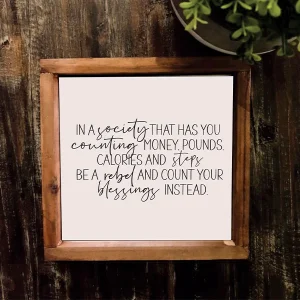 IN A society THAT HAS YOU
counting MONEY, POUNDS,
CALORIES AND steps
BE A rebel AND COUNT YOUR
blessings INSTEAD.